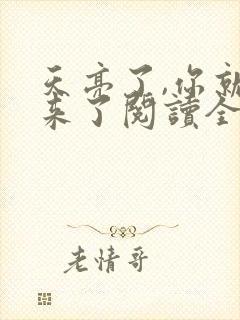 天亮了,你就
来了閱讀全
老情哥